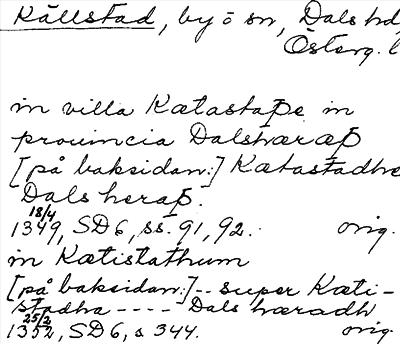 Källstad, by o sn, Dals hd,
Österg. l
in villa Kætastaþe in
prouincia Dalshæræþ
[på baksidan:] Kætastadhe
Dals heraþ.
18/4
1349, SD6, ss. 91, 92. orig.
in Kætistathum
[på baksidan:] -- super Kæti-
stadha ---- Dals hæradh
25/2
1352, SD6, s 344. orig